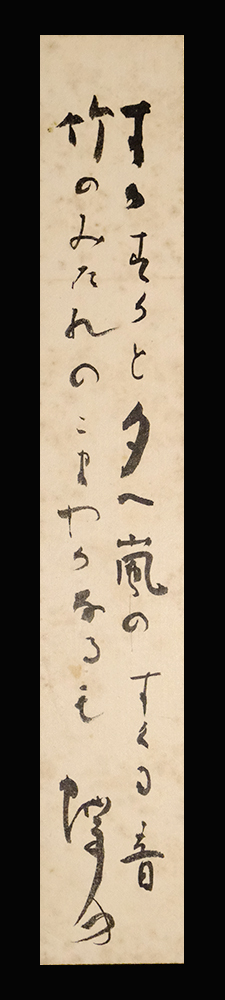 すかすかと夕へ嵐のすくる音
竹のみたれのこまやかなるも